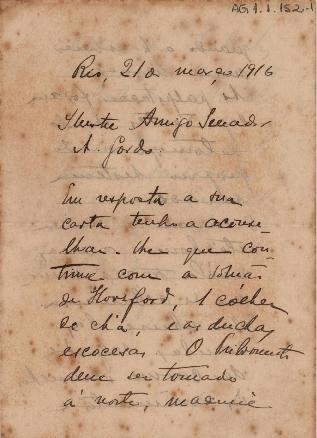 AG 1.1.152-1
Rio, 21 de março 1916
Illustre Amigo Senador
A. Gordo.
Em resposta a sua
carta tenho a aconse-
lhar-lhe que con-
tinue com a solução
de Horsford, 1 cólher
de chá, e as duchas
escocesas. O
deve ser tomado
á noite,